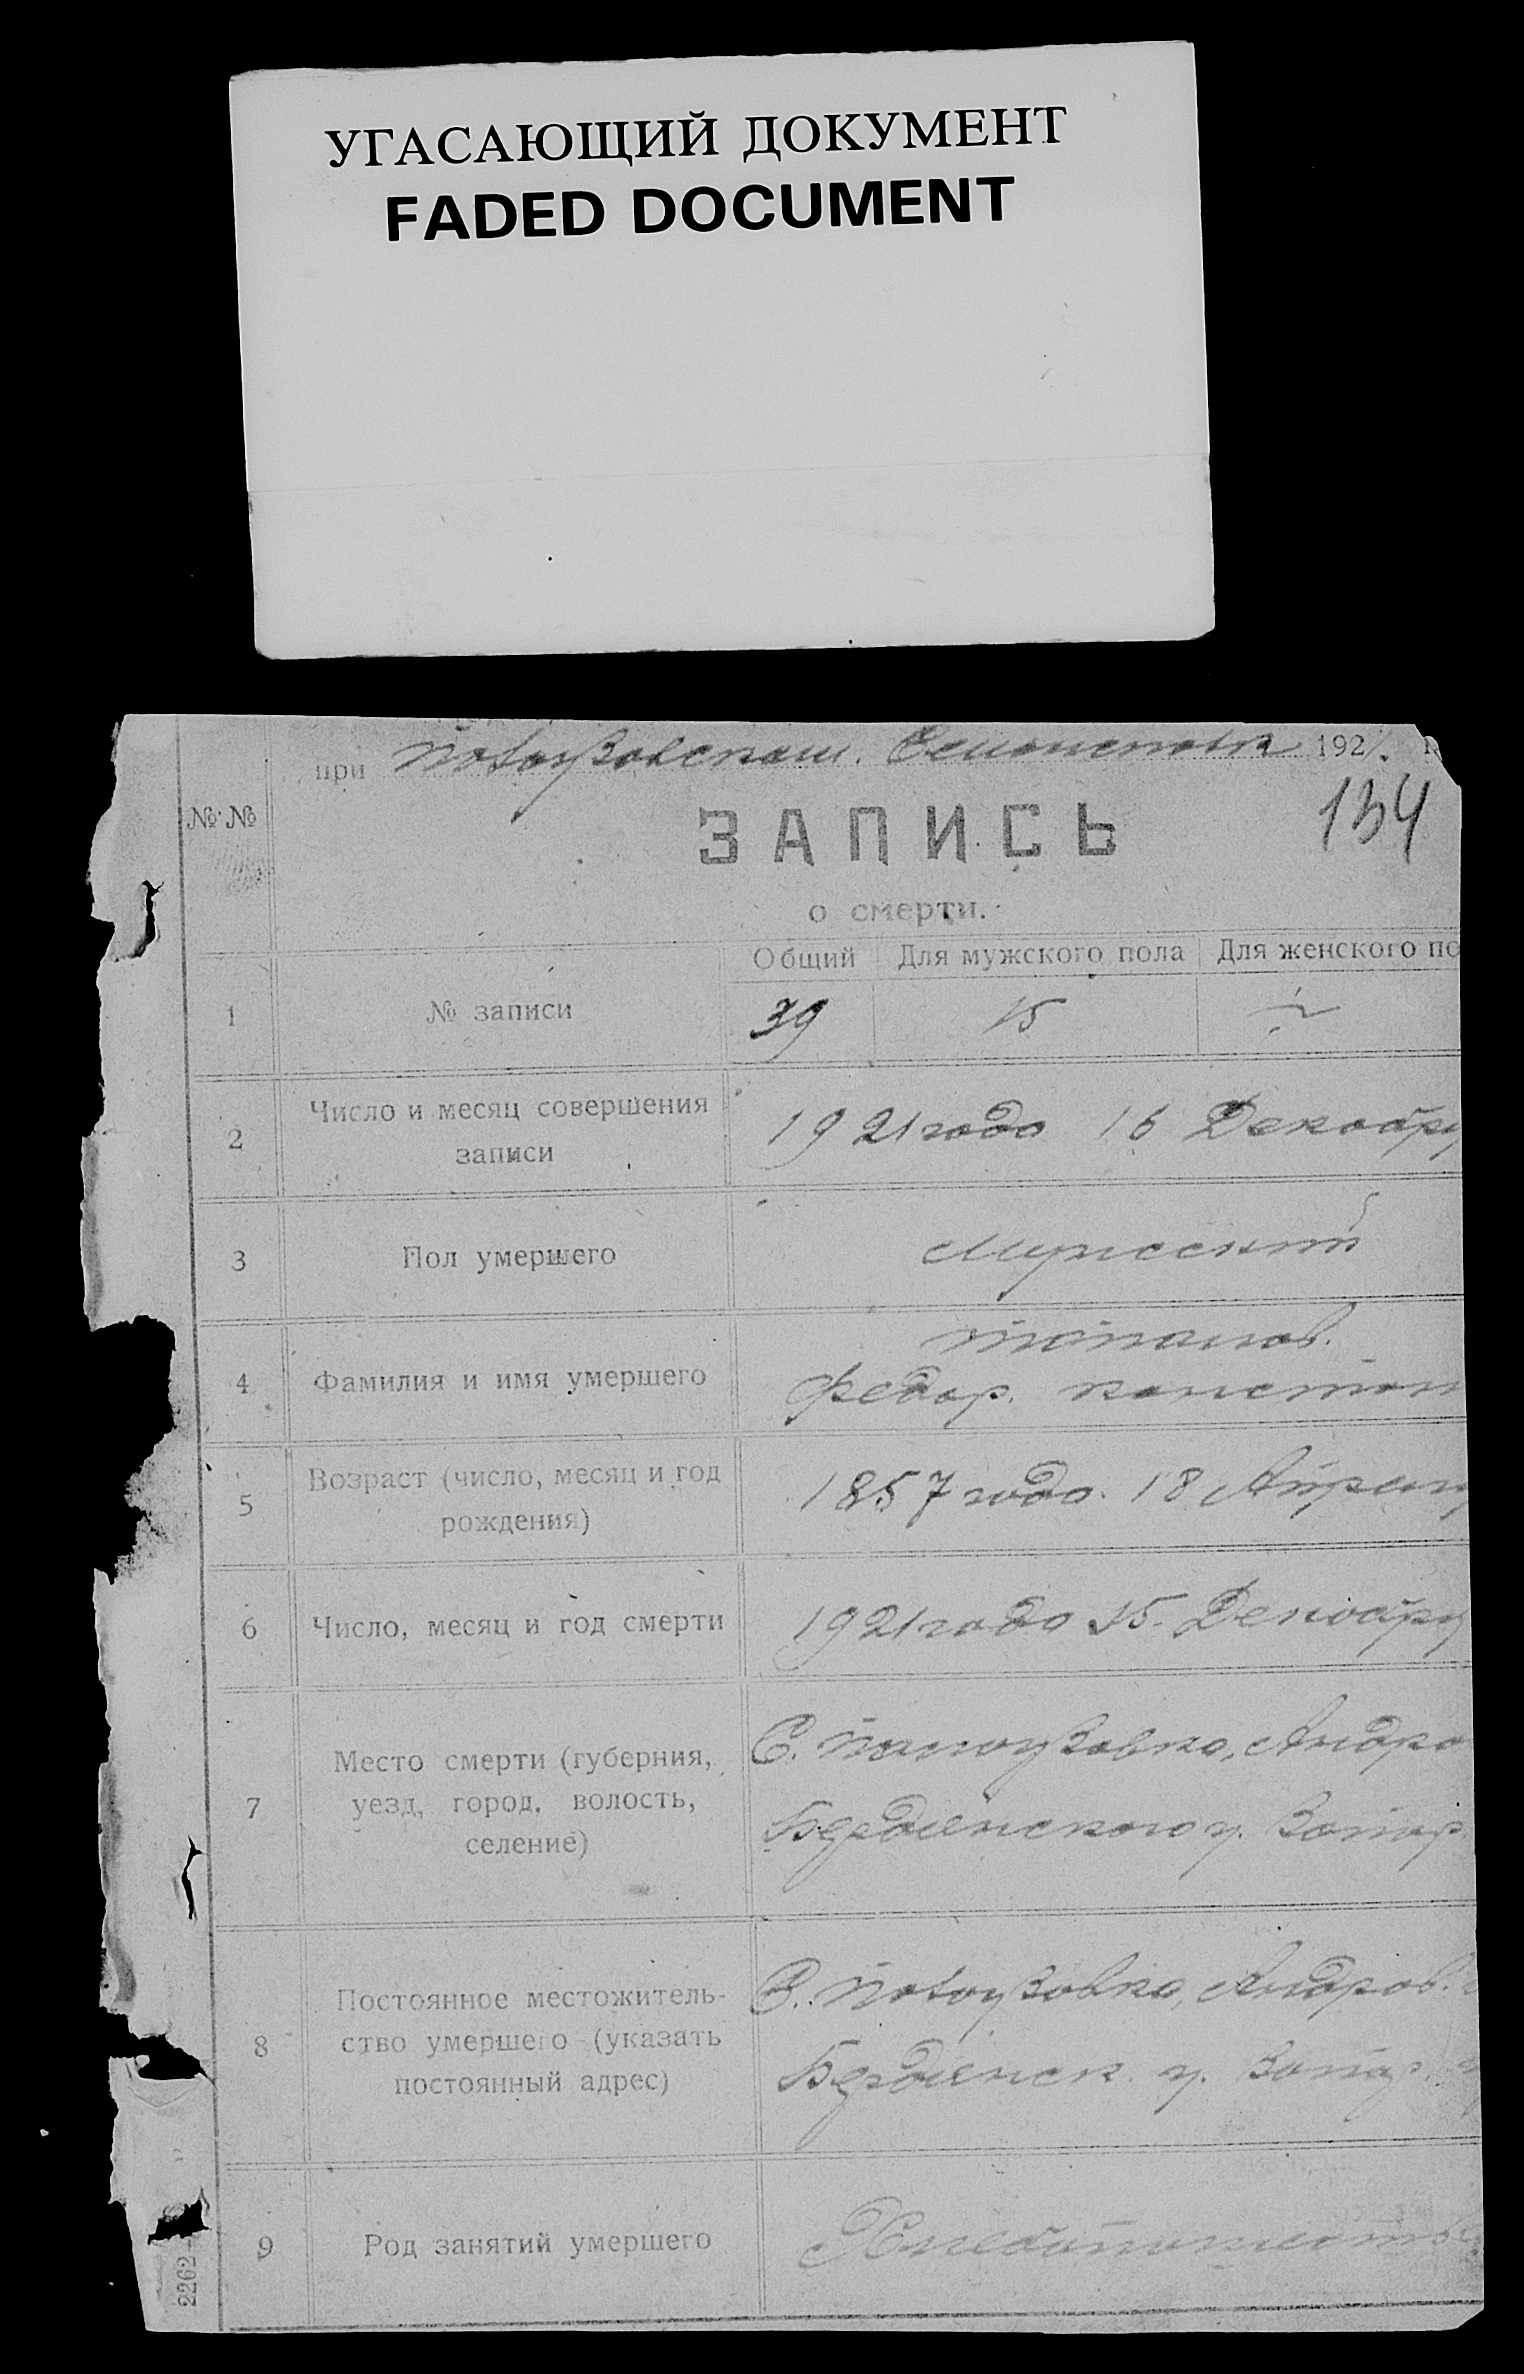 УГАСАЮЩИЙ ДОКУМЕНТ
FADED DOCUMENT
при 192
№ №
134
ЗАПИСЬ
о смерти.
Общий Для мужского пола Для женского по
1 № записи 39 15
2 Число и месяц совершения
записи
1921 года 16 Декабря
3 Пол умершего Мужский
4 Фамилия и имя умершего
Федор. Констан
5 Возраст (число, месяц и год
рождения)
1857 года. 18 Апреля
6 Число, месяц и год смерти 1921 года 15. Декабря
7 Место смерти (губерния,
уезд, город, волость,
селение)
С. Андро
Бердянского у. Запор
8 Постоянное местожитель-
ство умершего (указать
постоянный адрес)
С. Андров.
Бердянск. у. Запор.
9 Род занятий умершего
2262